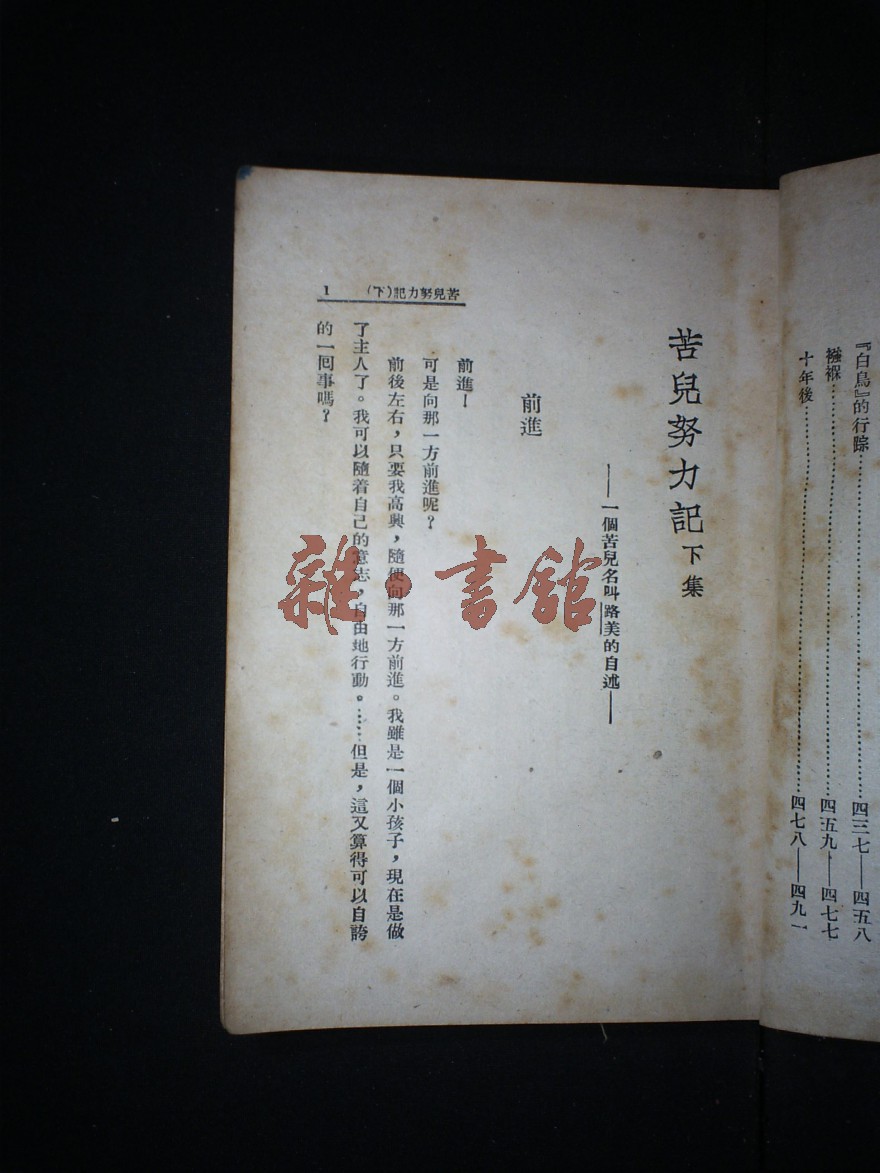 『白鳥』的行踪……四三七——四五八
襁褓……四五九——四七七
十年後……四七八——四九一
苦兒努力記 下集
——一個苦兒名叫路美的自述——
前進
苦兒努力記(下) 1
前進！
可是向那一方前進呢？
前後左右，只要我高興，隨便向那一方前進。我雖是一個小孩子，現在是做
了主人了。我可以隨着自己的意志，自由地行動。……但是，這又算得可以自誇
的一囘事嗎？
雜·書館